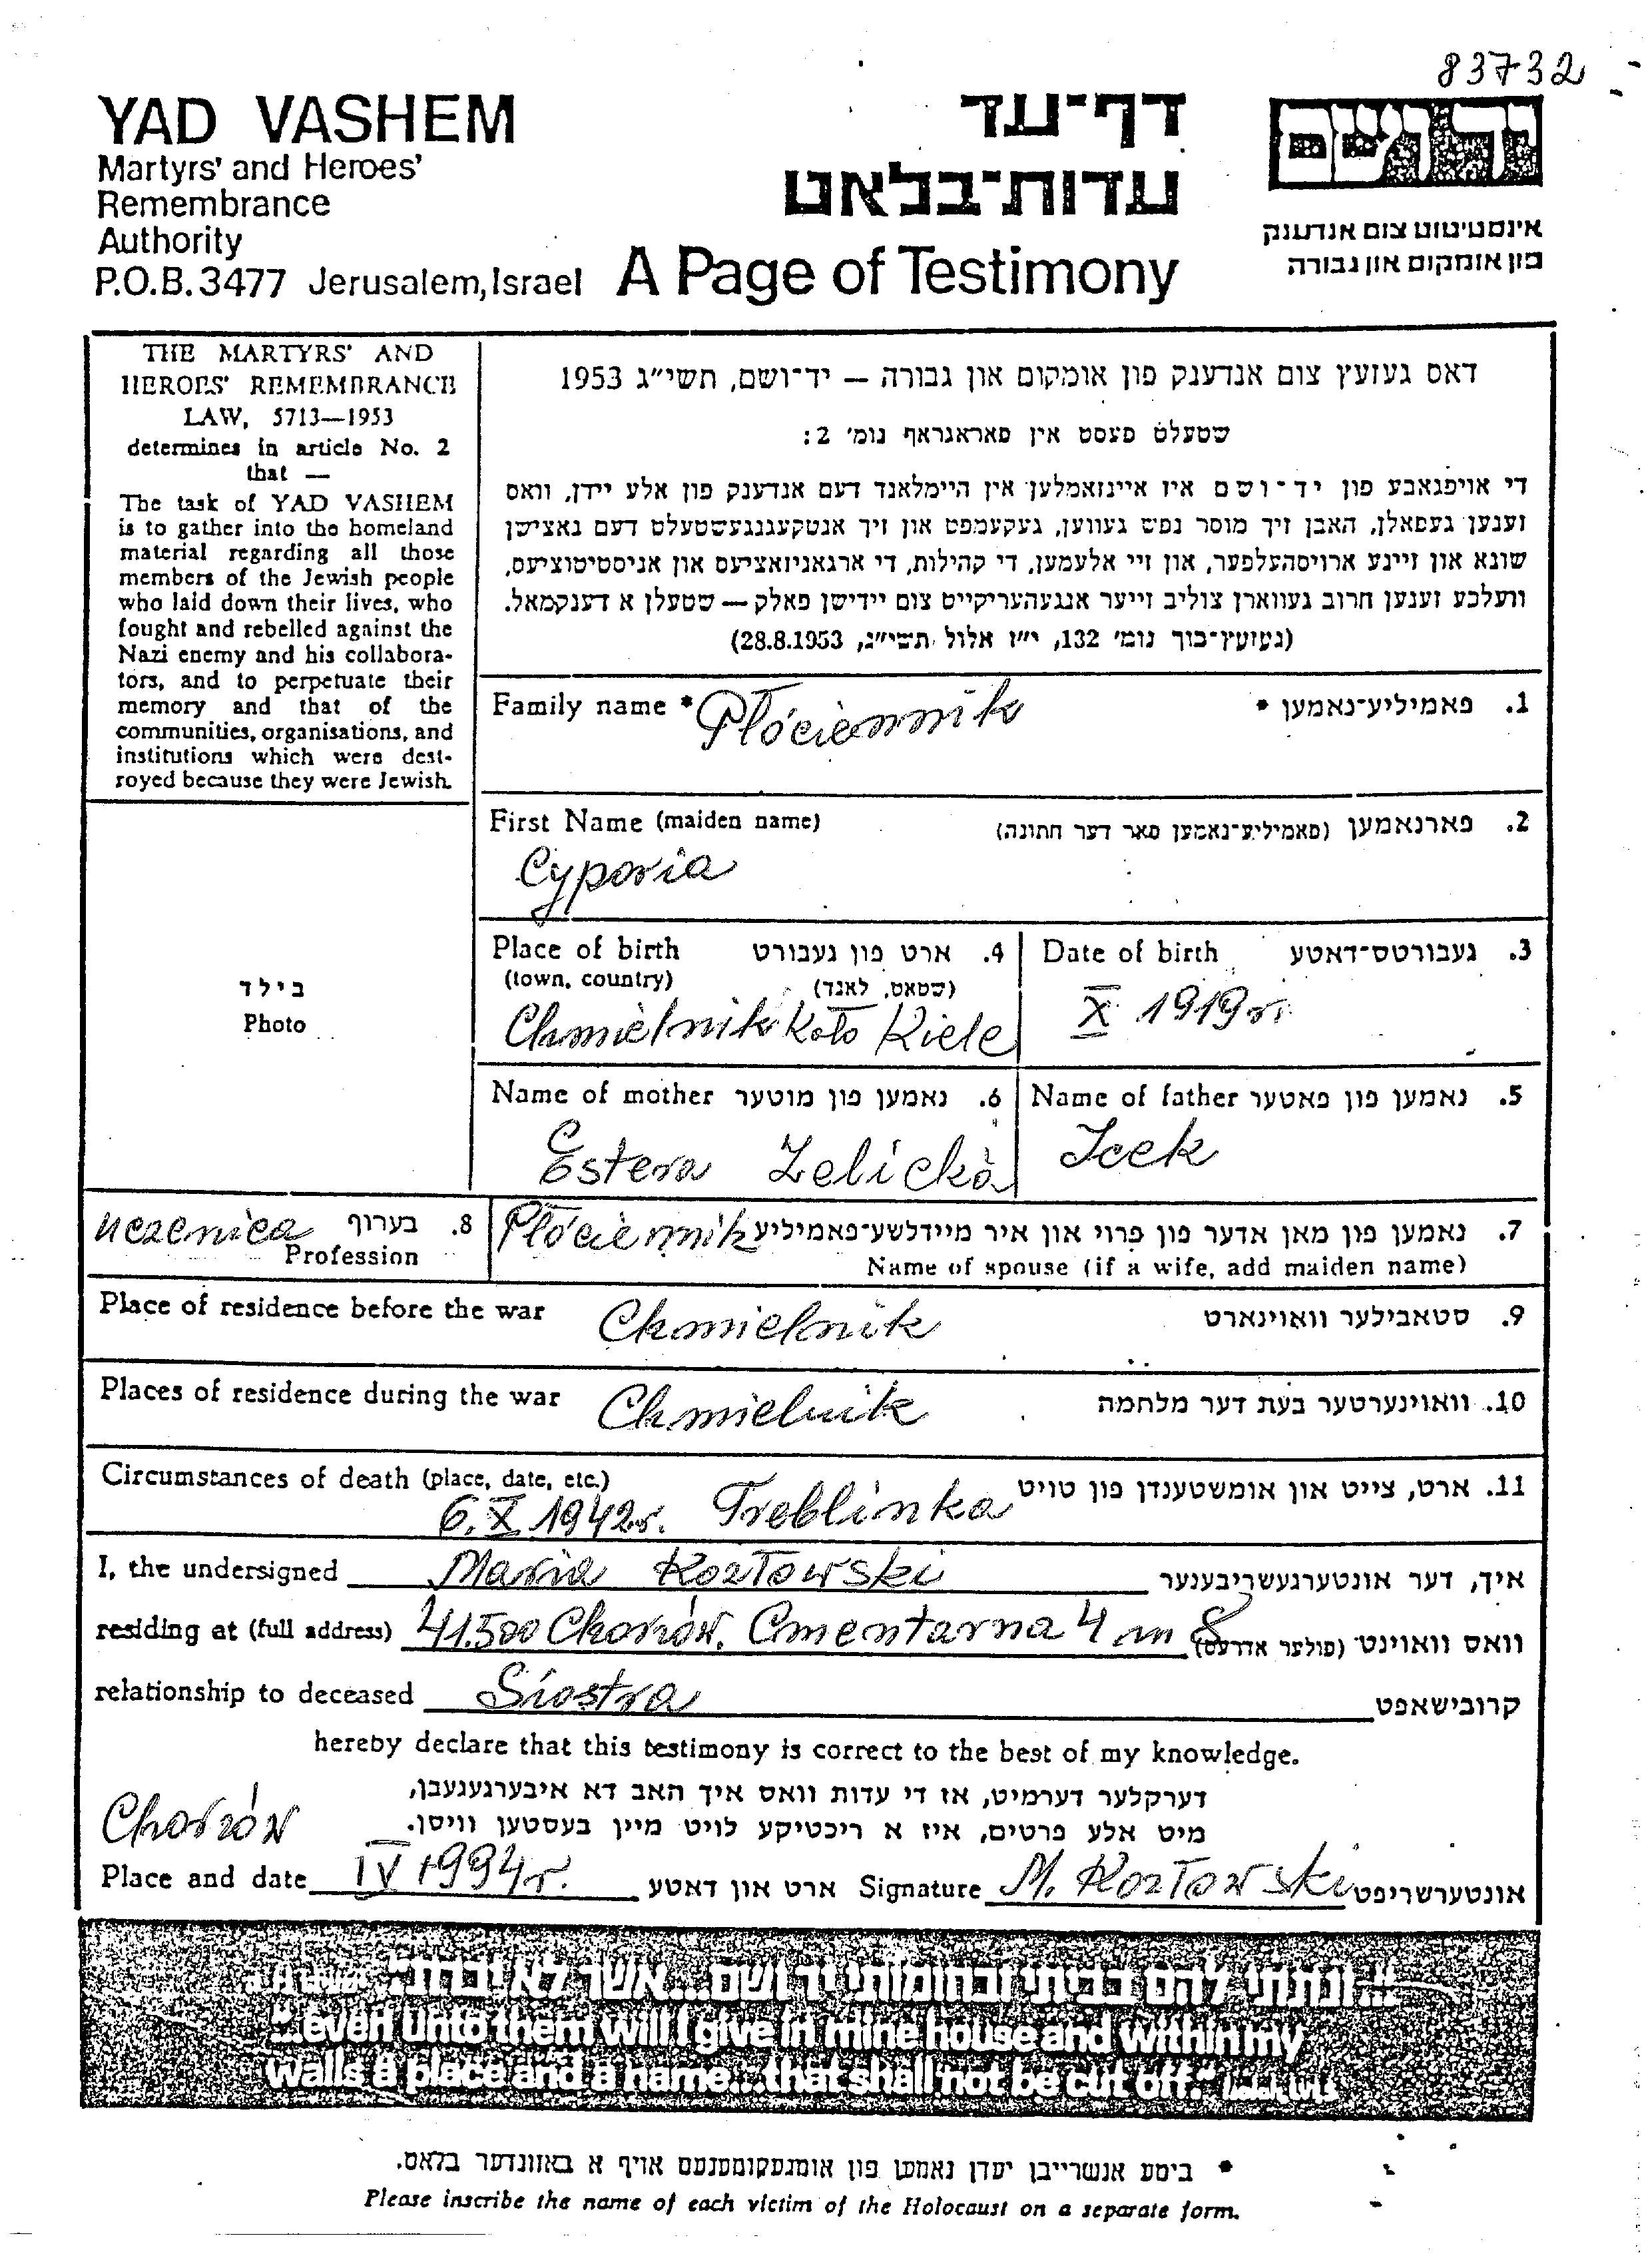 83732
YAD VASHEM
Martyrs' and Heroes'
Remembrance
Authority
P.O.B. 3477 Jerusalem, Israel
דף־עד
עדות־בלאט
A Page of Testimony
יד ושם
אינסטיטוט צום אנדענק
פון אומקום און גבורה
THE MARTYRS' AND
HEROES' REMEMBRANCE
LAW, 5713—1953
determines in article No. 2
that —
The task of YAD VASHEM
is to gather into the homeland
material regarding all those
members of the Jewish people
who laid down their lives, who
fought and rebelled against the
Nazi enemy and his collabora-
tors, and to perpetuate their
memory and that of the
communities, organisations, and
institutions which were dest-
royed because they were Jewish.
דאס געזעץ צום אנדענק פון אומקום און גבורה — יד־ושם, תשי״ג 1953
שטעלט פעסט אין פאראגראף נומ' 2:
די אויפגאבע פון יד־ושם איז איינזאמלען אין היימלאנד דעם אנדענק פון אלע יידן, וואס
זענען געפאלן, האבן זיך מוסר נפש געווען, געקעמפט און זיך אנטקעגנגעשטעלט דעם נאצישן
שונא און זיינע ארויסהעלפער, און זיי אלעמען, די קהילות, די ארגאניזאציעס און אניסטיטוציעס,
וועלכע זענען חרוב געווארן צוליב זייער אנגעהעריקייט צום יידישן פאלק — שטעלן א דענקמאל.
(געזעץ־בוך נומ' 132, י״ז אלול תשי״ג, 28.8.1953)
Family name * Płóciennik פאמיליע־נאמען * .1
First Name (maiden name) פארנאמען (פאמיליע־נאמען פאר דער חתונה) .2
Cyporia
Place of birth ארט פון געבורט .4
(town, country) (שטאט, לאנד)
Chmielnik koło Kielc
Date of birth געבורטס־דאטע .3
X 1919 r.
Name of mother נאמען פון מוטער .6
Estera Zelicka
Name of father נאמען פון פאטער .5
Icek
בילד
Photo
uczenica בערוף .8
Profession
Płóciennik נאמען פון מאן אדער פון פרוי און איר מיידלשע־פאמיליע .7
Name of spouse (if a wife, add maiden name)
Place of residence before the war Chmielnik סטאבילער וואוינארט .9
Places of residence during the war Chmielnik וואוינערטער בעת דער מלחמה .10
Circumstances of death (place, date, etc.) ארט, צייט און אומשטענדן פון טויט .11
6. X 1942 r. Treblinka
I, the undersigned Maria Kozłowski איך, דער אונטערגעשריבענער
residing at (full address) 41.500 Chorzów, Cmentarna 4 m 8 וואס וואוינט (פולער אדרעס)
relationship to deceased Siostra קרובישאפט
hereby declare that this testimony is correct to the best of my knowledge.
דערקלער דערמיט, אז די עדות וואס איך האב דא איבערגעגעבן,
מיט אלע פרטים, איז א ריכטיקע לויט מיין בעסטען וויסן.
Chorzów
Place and date IV 1994 r. ארט און דאטע Signature M. Kozłowski אונטערשריפט
"...ונתתי להם בביתי ובחומותי יד ושם...אשר לא יכרת"
"...even unto them will I give in mine house and within my
walls a place and a name...that shall not be cut off."
* ביטע אנשרייבן יעדן נאמען פון אומגעקומענעם אויף א באזונדער בלאט.
Please inscribe the name of each victim of the Holocaust on a separate form.